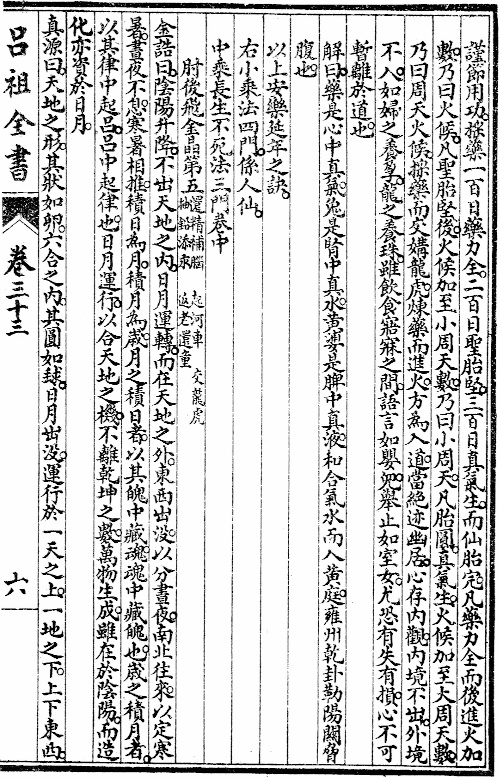 謹節用功。採藥一百日藥力全。二百日聖胎堅。三百日真氣生。而仙胎完。凡藥力全而後進火加
數。乃曰火候。凡聖胎堅後。火候加至小周天數。乃曰小周天。凡胎圓真氣生。火候加至大周天數。
乃曰周天火候。採藥而交媾龍虎。煉藥而進火。方為入道。當絕迹幽居。心存內觀。內境不出。外境
不入。如婦之養孕。龍之養珠。雖飲食寤寐之間。語言如嬰兒。舉止如室女。尤恐有失有損。心不可
暫離於道也。
解曰。藥是心中真氣。兔是腎中真水。黃婆是脾中真液。和合氣水而入黃庭。雍州乾卦。勒陽關脅
腹也。
以上安樂延年之訣。
右小乘法四門。係人仙。
中乘長生不死法三門。卷中
肘後飛金晶第五 還精補腦 起河車 交龍虎
抽鉛添汞 返老還童
金誥曰。陰陽升降。不出天地之內。日月運轉。而在天地之外。東西出沒。以分晝夜。南北往來。以定寒
暑。晝夜不息。寒暑相推。積日為月。積月為歲。月之積日者。以其魄中藏魂。魂中藏魄也。歲之積月者。
以其律中起呂。呂中起律也。日月運行。以合天地之機。不離乾坤之數。萬物生成。雖在於陰陽。而造
化亦資於日月。
真源曰。天地之形。其狀如卵。六合之內。其圓如毬。日月出沒。運行於一天之上。一地之下。上下東西。
呂祖全書 卷三十三 六